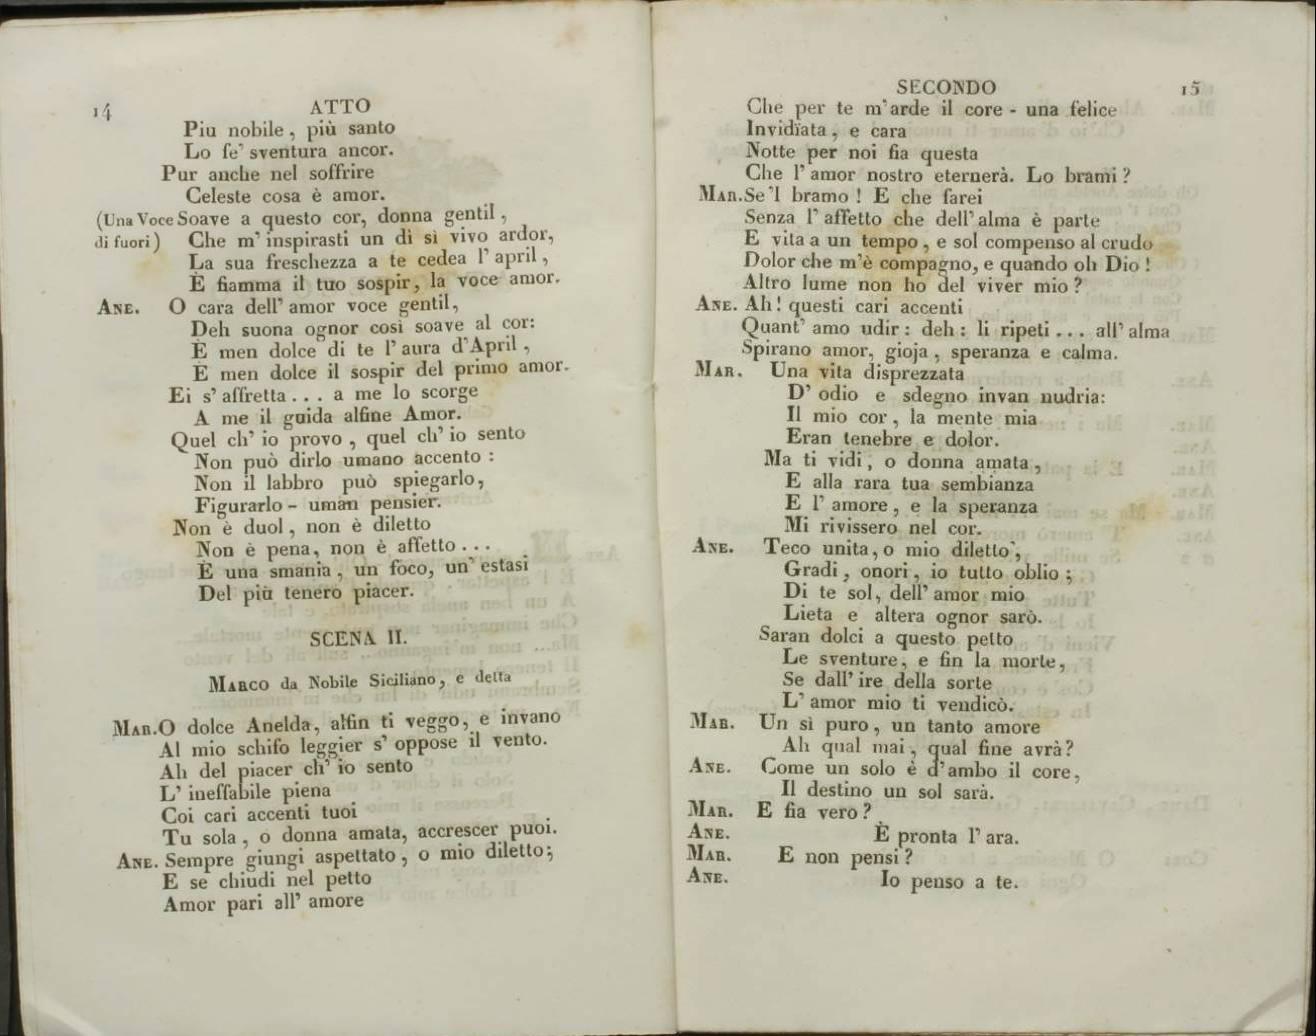 14
ATTO
Piu nobile, più santo
Lo fe' sventura ancor.
Pur anche nel soffrire
Celeste cosa è amor.
(Una Voce Soave a questo cor, donna gentil,
di fuori) Che m' inspirasti un dì sì vivo ardor,
La sua freschezza a te cedea l' april,
È fiamma il tuo sospir, la voce amor.
ANE. O cara dell' amor voce gentil,
Deh suona ognor così soave al cor:
È men dolce di te l' aura d'April,
È men dolce il sospir del primo amor.
Ei s' affretta... a me lo scorge
A me il guida alfine Amor.
Quel ch' io provo, quel ch' io sento
Non può dirlo umano accento:
Non il labbro può spiegarlo,
Figurarlo - uman pensier.
Non è duol, non è diletto
Non è pena, non è affetto...
È una smania, un foco, un' estasi
Del più tenero piacer.
SCENA II.
MARCO da Nobile Siciliano, e detta
MAR. O dolce Anelda, alfin ti veggo, e invano
Al mio schifo leggier s' oppose il vento.
Ah del piacer ch' io sento
L' ineffabile piena
Coi cari accenti tuoi
Tu sola, o donna amata, accrescer puoi.
ANE. Sempre giungi aspettato, o mio diletto;
E se chiudi nel petto
Amor pari all' amore
SECONDO
15
Che per te m'arde il core - una felice
Invidïata, e cara
Notte per noi fia questa
Che l' amor nostro eternerà. Lo brami?
MAR. Se'l bramo! E che farei
Senza l' affetto che dell' alma è parte
E vita a un tempo, e sol compenso al crudo
Dolor che m'è compagno, e quando oh Dio!
Altro lume non ho del viver mio?
ANE. Ah! questi cari accenti
Quant' amo udir: deh: li ripeti... all' alma
Spirano amor, gioja, speranza e calma.
MAR. Una vita disprezzata
D' odio e sdegno invan nudria:
Il mio cor, la mente mia
Eran tenebre e dolor.
Ma ti vidi, o donna amata,
E alla rara tua sembianza
E l' amore, e la speranza
Mi rivissero nel cor.
ANE. Teco unita, o mio diletto,
Gradi, onori, io tutto oblio;
Di te sol, dell' amor mio
Lieta e altera ognor sarò.
Saran dolci a questo petto
Le sventure, e fin la morte,
Se dall' ire della sorte
L' amor mio ti vendicò.
MAR. Un sì puro, un tanto amore
Ah qual mai, qual fine avrà?
ANE. Come un solo è d'ambo il core,
Il destino un sol sarà.
MAR. E fia vero?
ANE. È pronta l' ara.
MAR. E non pensi?
ANE. Io penso a te.